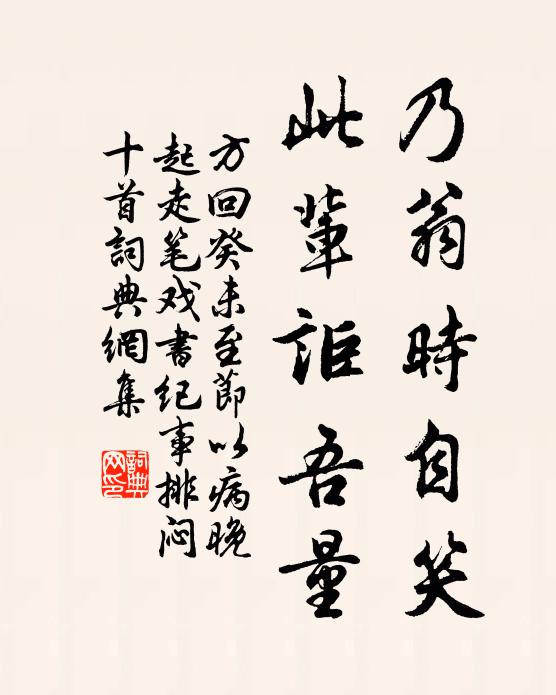 乃翁時自笑
此輩詎吾量
方回癸未至節以病晚
起走笔戏書纪事排闷
十首詞典網集
詞典
网印